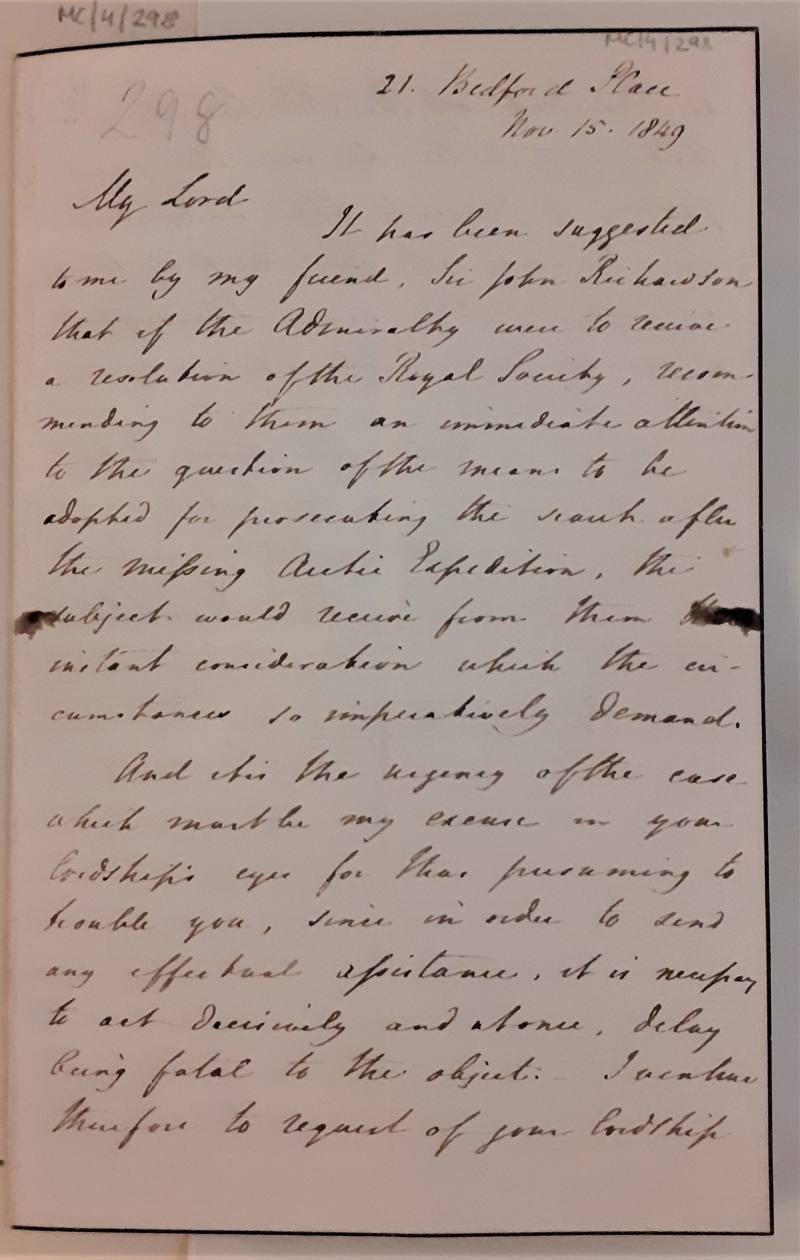 MC/4/298
MC/4/298
298
21. Bedford Place
Nov. 15. 1849
My Lord
It has been suggested
to me by my friend, Sir John Richardson
that if the Admiralty were to receive
a resolution of the Royal Society, recom-
mending to them an immediate attention
to the question of the means to be
adopted for prosecuting the search after
the missing Arctic Expedition, the
subject would receive from them
instant consideration which the cir-
cumstances so imperatively demand.
And it is the urgency of the case
which must be my excuse in your
lordship's eyes for thus presuming to
trouble you, since in order to send
any effectual assistance, it is necessary
to act decisively and at once, delay
being fatal to the object. I venture
therefore to request of your lordship